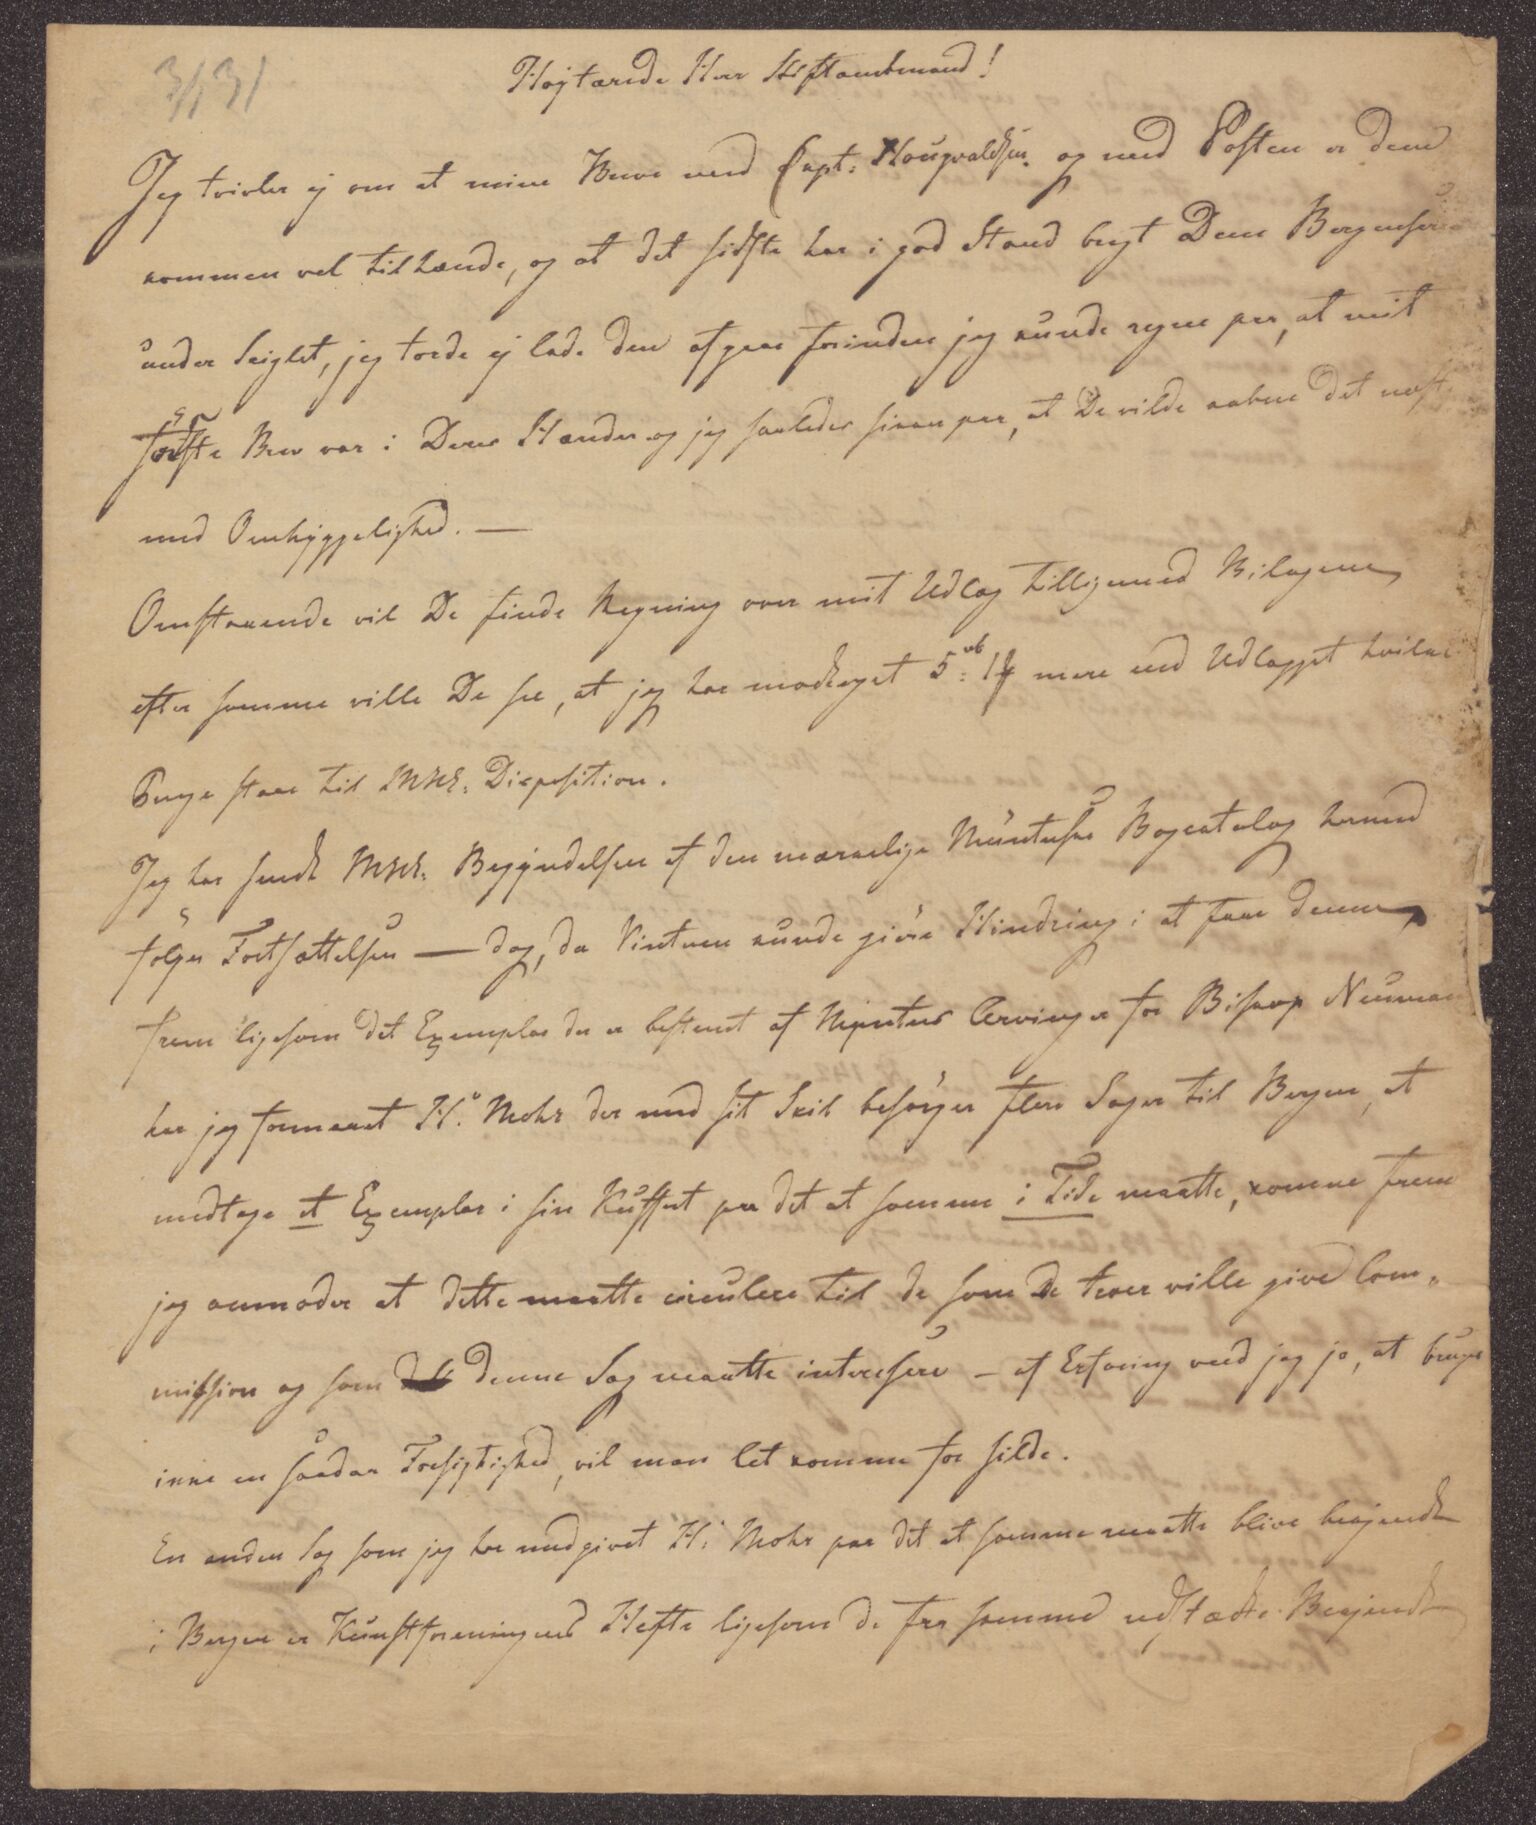 3/31
Højtærede Herr Stiftamtmand!
Jeg tvivler ej om at mine Breve med Capt: Hougvaldsen og med Posten er dem
kommen vel tilhænde, og at det sidste har i god Stand bragt Dem Bergenser
under Seiglet, jeg torde ej lade den afgaae forinden jeg kunde regne paa, at mit
første Brev var i Deres Hænder og jeg saaledes sikker paa, at De vilde aabne det næste
med Omhyggelighed. —
Omstaaende vil De finde Regning over mit Udlæg tilligemed Bilagene,
efter samme ville De see, at jeg har modtaget 5 rb: 1 ß mere end Udlægget hvilke
Penge staae til MHH: Disposition.
Jeg har sendt MHH: Begyndelsen af den mærkelige Münterske Bogcatalog hermed
følger Fortsættelsen — dog, da Vinteren kunde giöre Hindring i at faae denne
frem ligesom det Exemplar der er bestemt af Registers Arvinger for Biskop Neumann
har jeg formaaet Hr. Mohr der med sit Skib besørger flere Sager til Bergen, at
medtage et Exemplar i sin Kuffert paa det at samme i Tide maatte komme frem
jeg anmoder at dette maatte circulere til de som De troer ville give Com-
mission og som denne Sag maatte interessere – af Erfaring veed jeg jo, at bruger
ikke en saadan Forsigtighed, vil man let komme for silde.
En anden Sag som jeg har medgivet Hr. Mohr paa det at samme maatte blive bekjendt
i Bergen er Kunstforeningens Hefte ligesom de fra samme udstædte Bekjendt